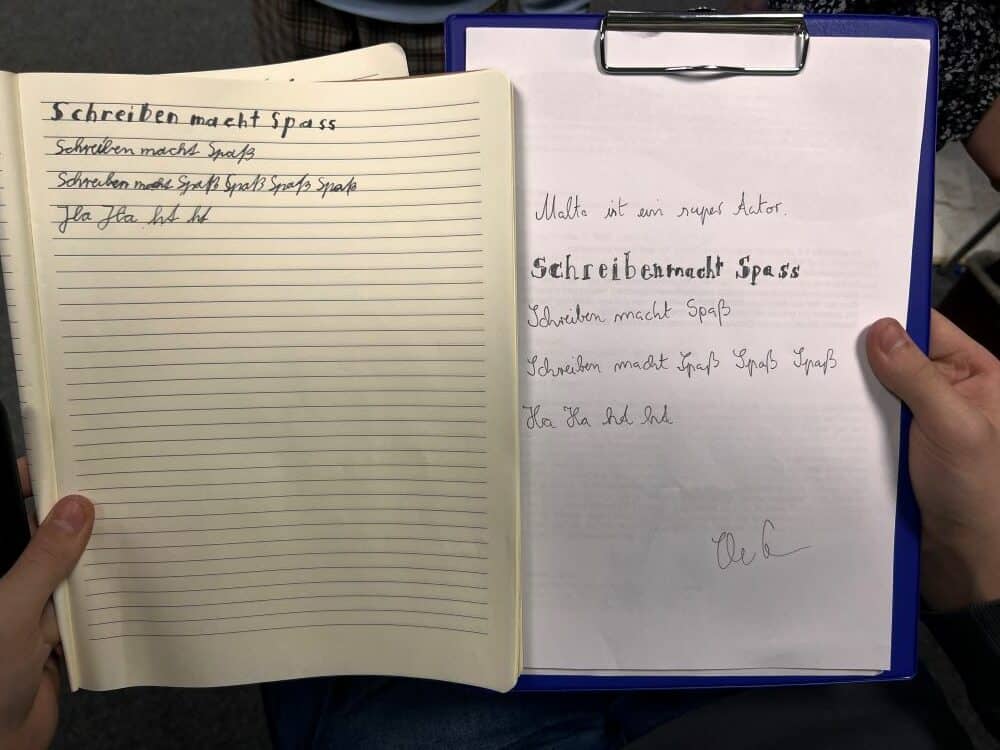 Schreiben macht Spass
Schreiben macht Spaß
Schreiben macht Spaß Spaß Spaß Spaß
Ha Ha ht ht
Malta ist ein super Aator.
Schreibenmacht Spass
Schreiben macht Spaß
Schreiben macht Spaß Spaß Spaß
Ha Ha ht ht